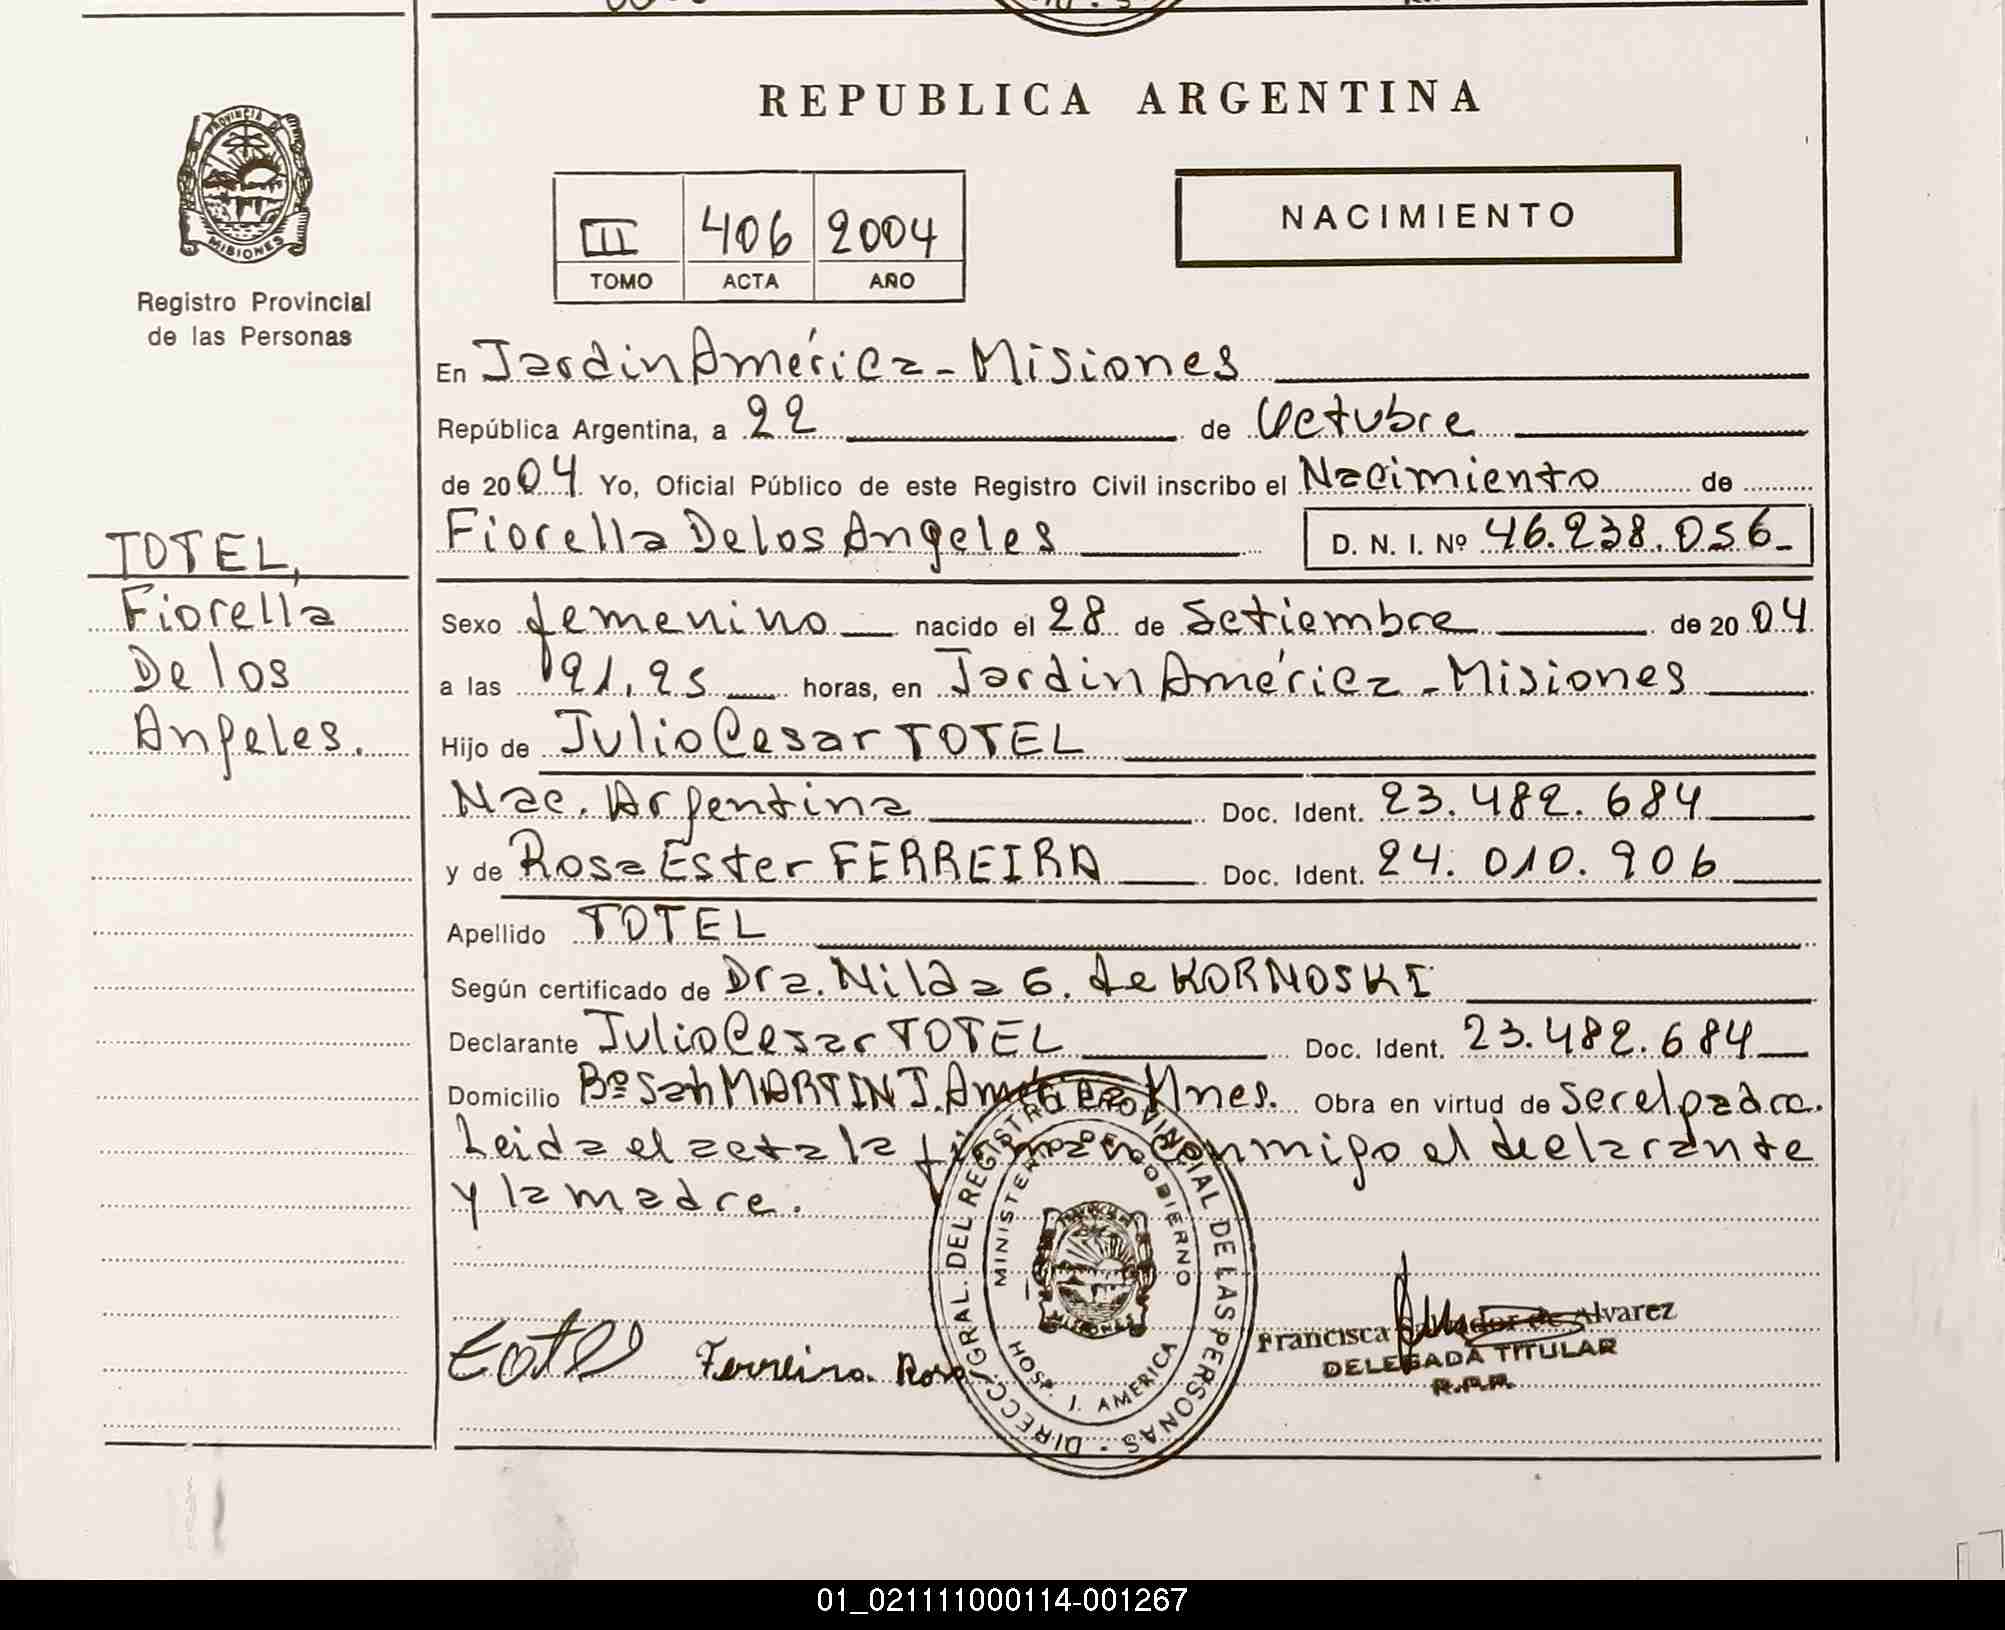 REPUBLICA ARGENTINA
PROVINCIA DE
MISIONES
Registro Provincial
de las Personas
III 406 2004
TOMO ACTA AÑO
NACIMIENTO
En Jardin América - Misiones
República Argentina, a 22 de Octubre
de 2004. Yo, Oficial Público de este Registro Civil inscribo el Nacimiento de
Fiorella De los Angeles D. N. I. Nº 46.238.056
TOTEL,
Fiorella
De los
Angeles.
Sexo femenino nacido el 28 de Setiembre de 2004
a las 21,25 horas, en Jardin América - Misiones
Hijo de Julio Cesar TOTEL
Nac. Argentina Doc. Ident. 23.482.684
y de Rosa Ester FERREIRA Doc. Ident. 24.010.906
Apellido TOTEL
Según certificado de Dra. Nilda G. de KORNOSKI
Declarante Julio Cesar TOTEL Doc. Ident. 23.482.684
Domicilio Bº San MARTIN J. América Mnes. Obra en virtud de ser el padre.
Leida el acta la firman conmigo el declarante
y la madre.
DIRECC. GRAL. DEL REGISTRO PROVINCIAL DE LAS PERSONAS
MINISTERIO DE GOBIERNO
MISIONES
HOSP. J. AMERICA
Ferreira Rosa
Francisca Salvador de Alvarez
DELEGADA TITULAR
R.P.P.
01_021111000114-001267